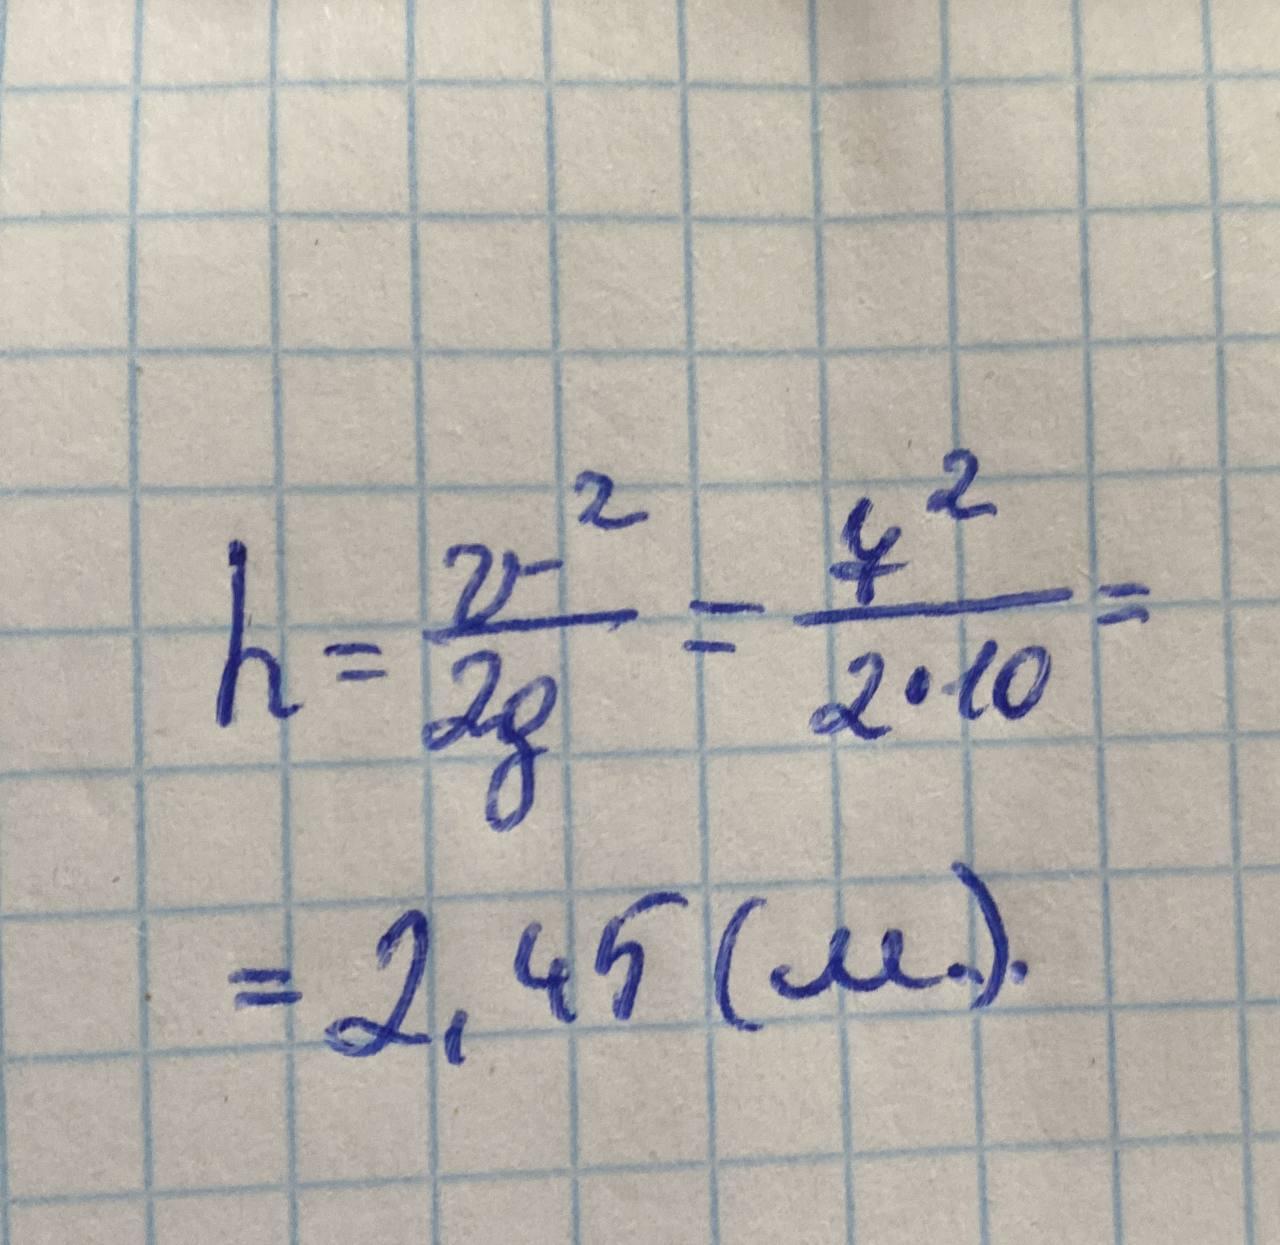 h = v²/2g = 7²/2·10 =
= 2,45 (м.).